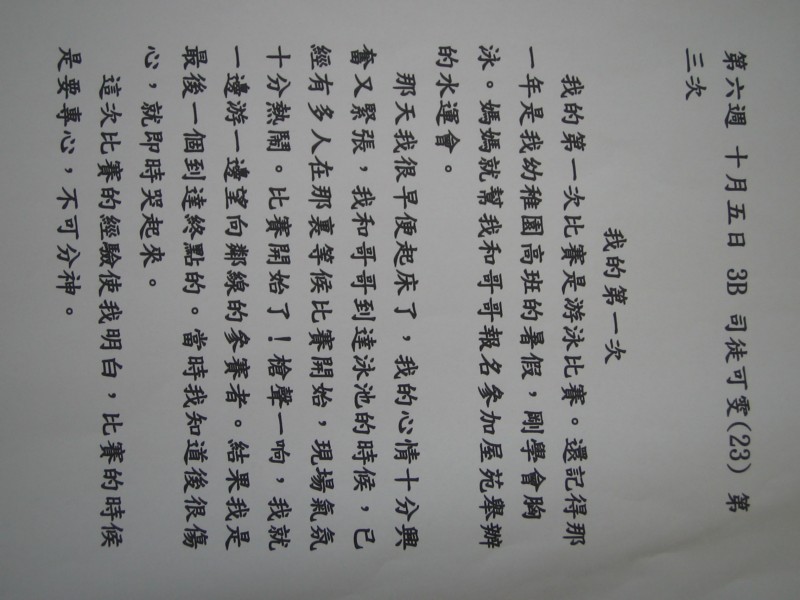 第六週 十月五日 3B 司徒可雯(23) 第
三次
我的第一次
我的第一次比賽是游泳比賽。還記得那
一年是我幼稚園高班的暑假，剛學會胸
泳。媽媽就幫我和哥哥報名參加屋苑舉辦
的水運會。
那天我很早便起床了，我的心情十分興
奮又緊張，我和哥哥到達泳池的時候，已
經有多人在那裏等候比賽開始，現場氣氛
十分熱鬧。比賽開始了！槍聲一响，我就
一邊游一邊望向鄰線的參賽者。結果我是
最後一個到達終點的。當時我知道後很傷
心，就即時哭起來。
這次比賽的經驗使我明白，比賽的時候
是要專心，不可分神。